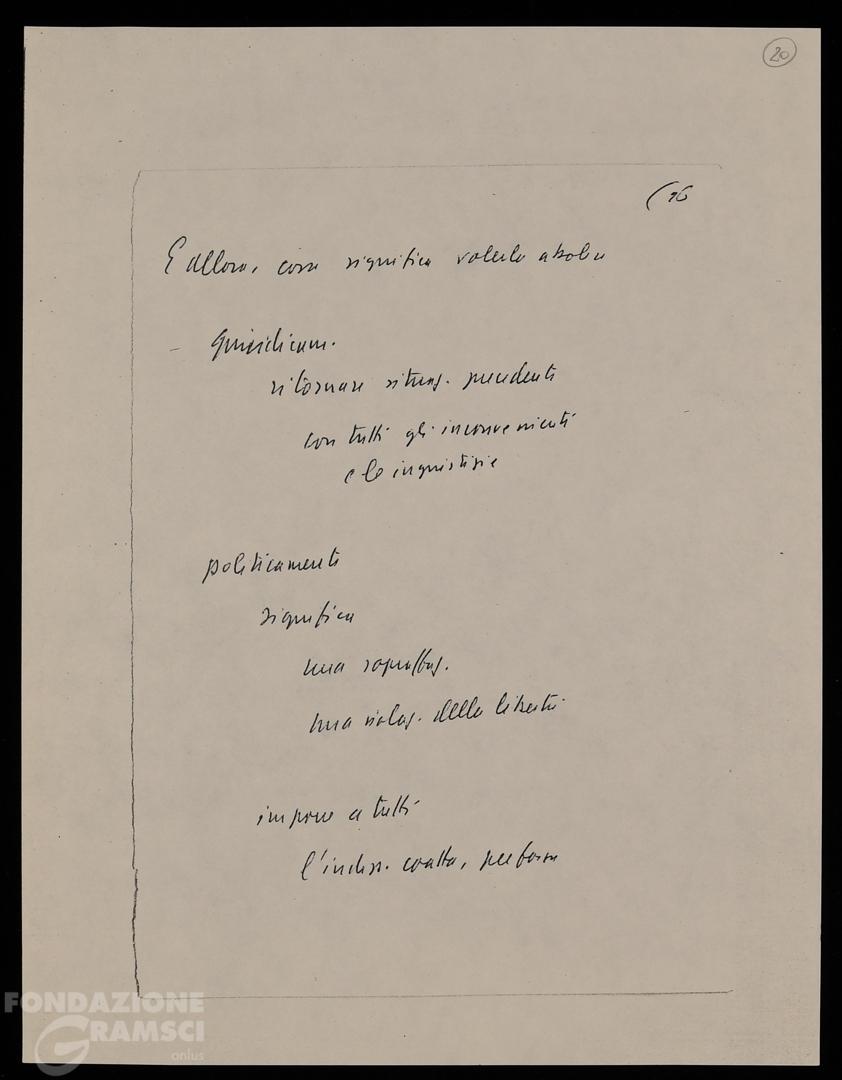 20
(16
E allora, cosa significa volerlo abolire
- Giuridicam.
ritornare situaz. precedente
con tutti gli inconvenienti
e le ingiustizie
politicamente
significa
una sopraffaz.
una violaz. della libertà
imporre a tutti
l'indiss. coatta, per forza
FONDAZIONE
GRAMSCI
onlus